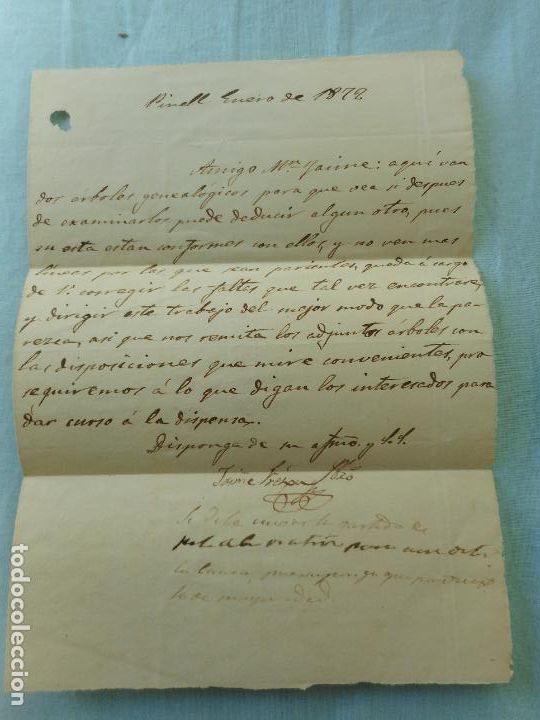 Pinell Enero de 1872
Amigo Mn. Jaime: aqui van
dos árboles genealogicos para que vea si despues
de examinarlos puede deducir algun otro, pues
su esta estan conformes con ellos, y no ven mas
lineas por las que sean parientes, queda á cargo
de V. corregir las faltas que tal vez encontrare,
y dirigir este trabajo del mejor modo que le pa-
rezca, asi que nos remita los adjuntos árboles con
las disposiciones que mire convenientes, pro
seguiremos á lo que digan los interesados para
dar curso á la dispensa.
Disponga de su afmo. y S.S.
Pbro
Si debe la partida
de la para
la que
de mayor edad.
todocoleccion